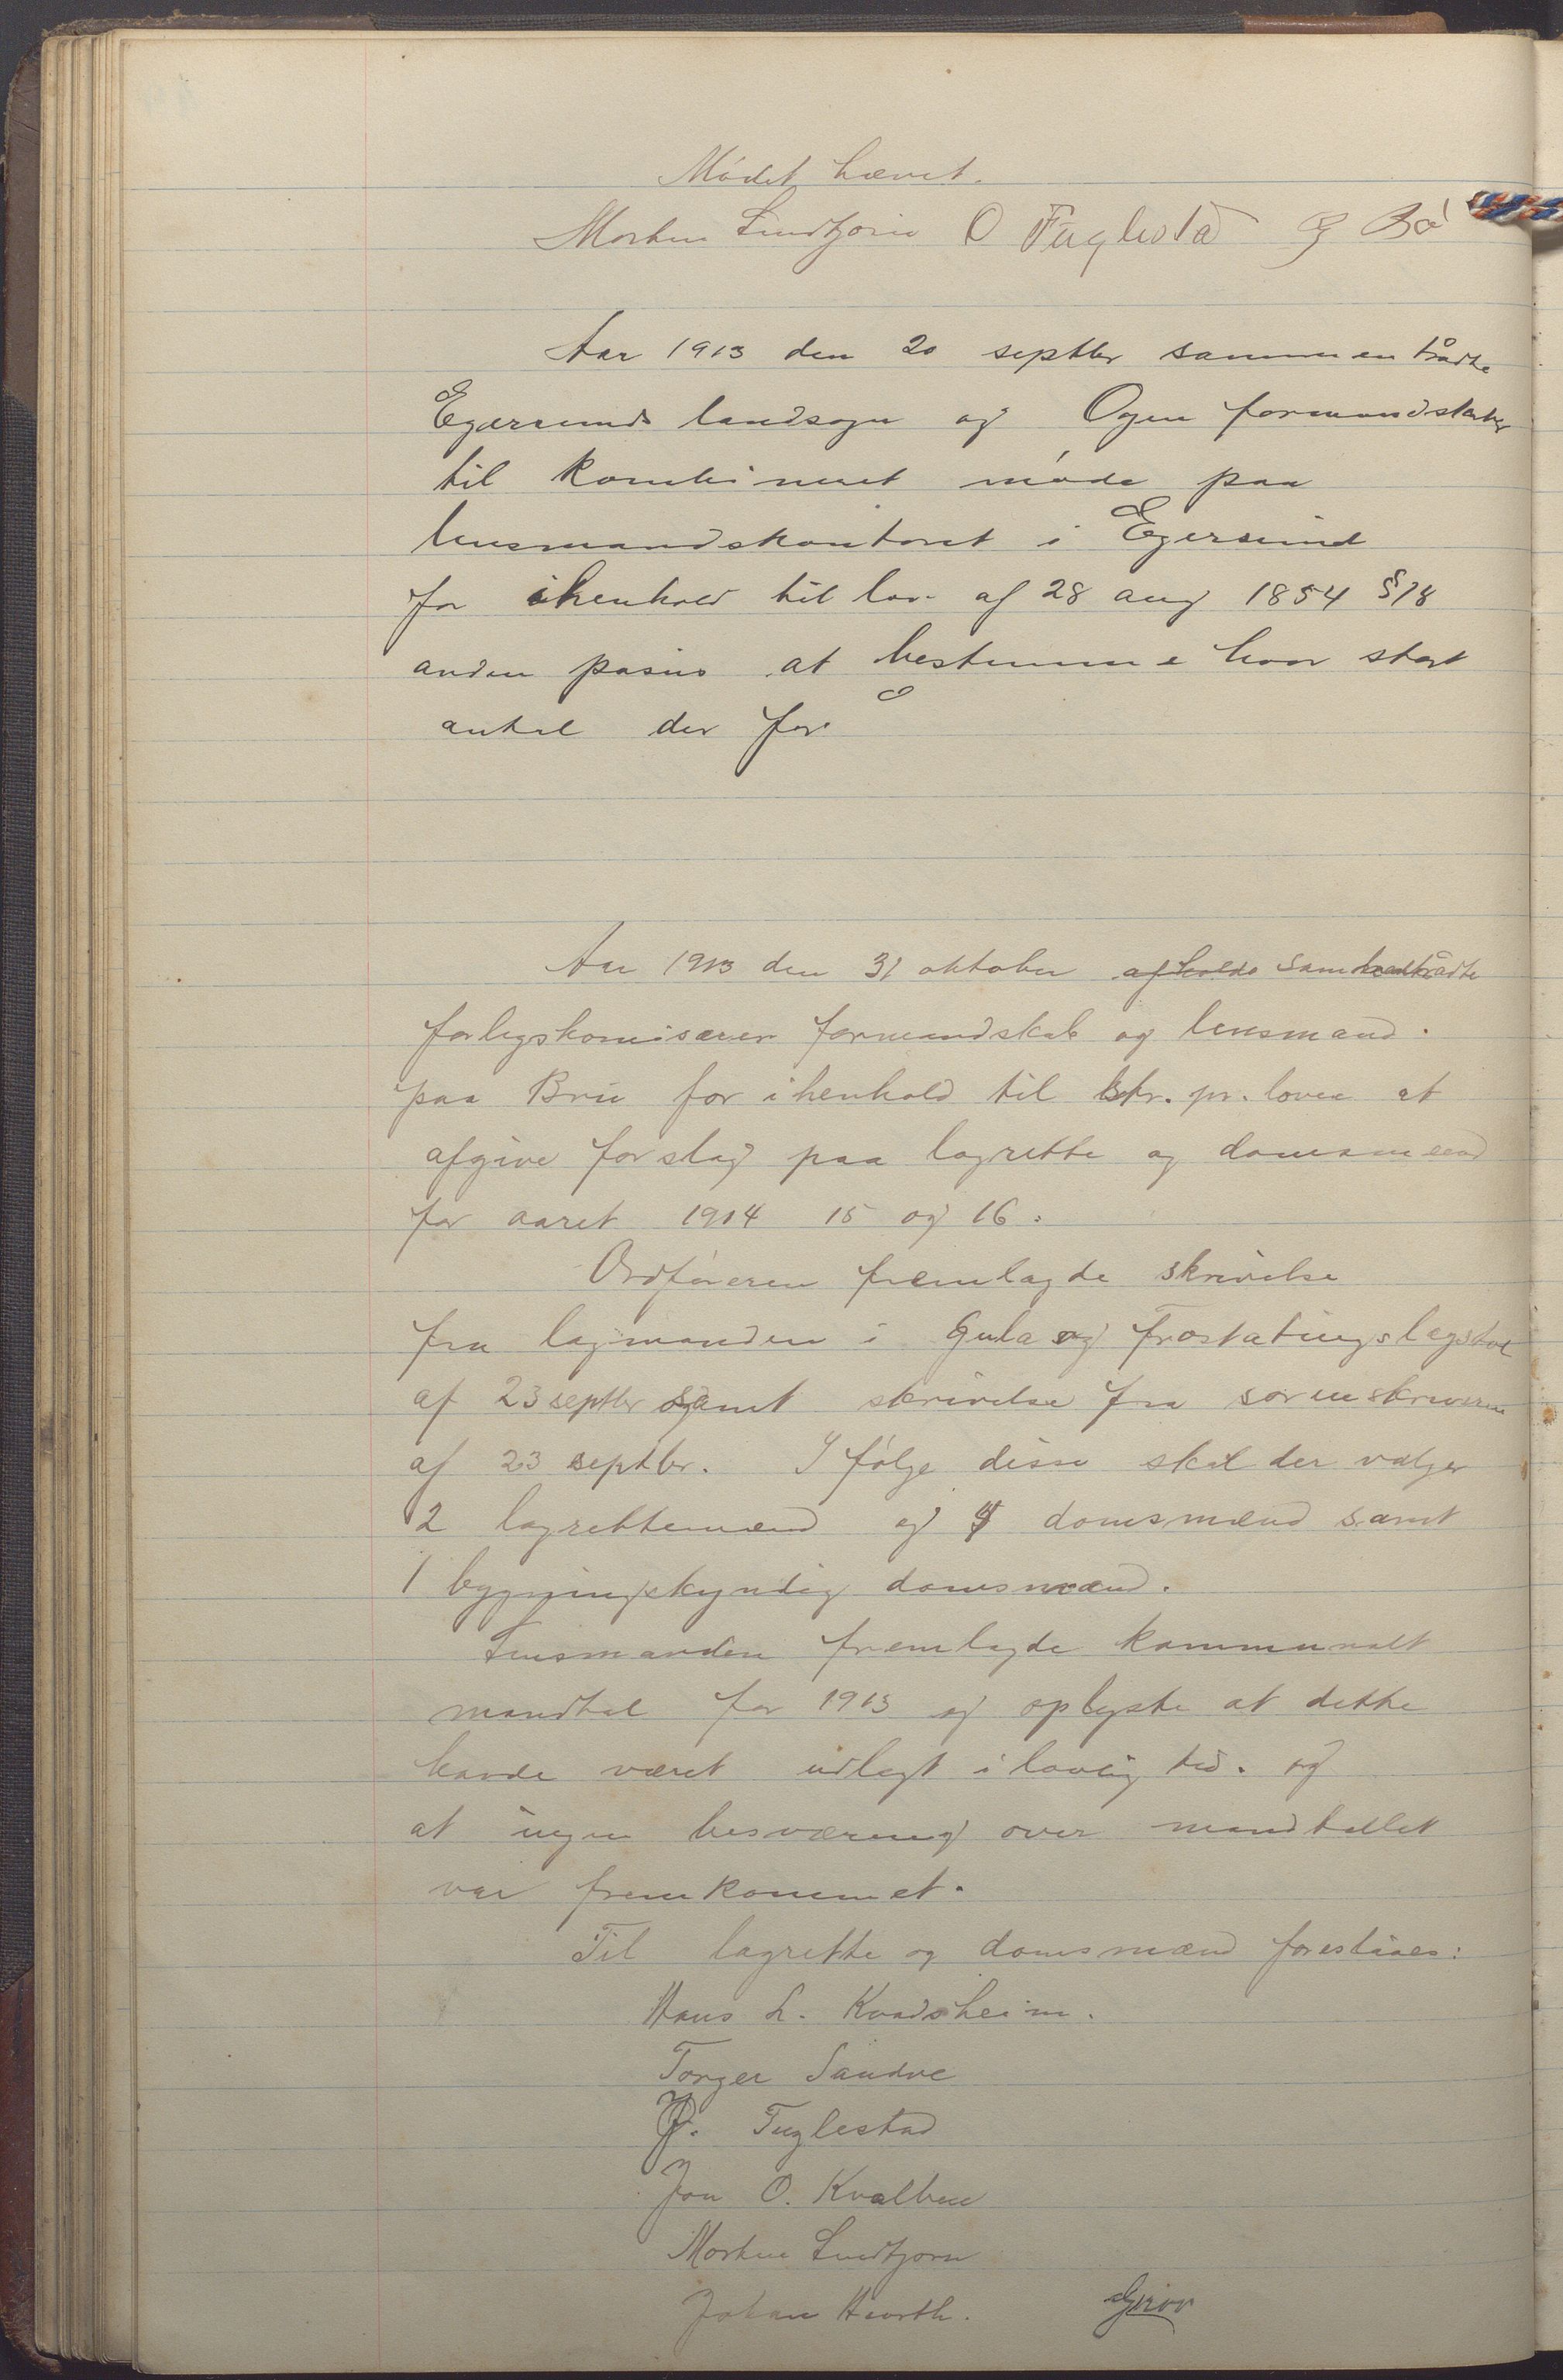 Mødet hævet.
Morten Lindtjørn O Fuglestad B Bø
Aar 1913 den 20 septbr sammentrådte
Egersunds landsogn og Ogne formandskaber
til kombineret møde paa
lensmandskontoret i Egersund
for ihenhold til lov af 28 aug 1854 § 18
anden pasus at bestemme hvor stort
antal der for
Aar 1913 den 31 oktober afholdt sammentrådte
forligskomisærer formandskab og lensmand
paa Bru for ihenhold til str. pr. loven at
afgive forslag paa lagrette og domsmænd
for aaret 1914 15 og 16.
Ordføreren fremlagde skrivelse
fra lagmanden i Gula og Frostatings lagstol
af 23 septbr samt skrivelse fra sorenskriveren
af 23 septbr. Ifølge disse skal der valges
2 lagrettemænd og 4 domsmænd samt
1 bygningskyndig domsmænd.
Lensmanden fremlagde kommunalt
mandtal for 1913 og oplyste at dette
havde været udlagt i lovlig tid. og
at ingen besværing over mandtallet
var fremkommet.
Til lagrette og domsmænd foreslåes:
Hans L. Kvadsheim.
Torger Sandve
Fuglestad
Jon O. Kvalben
Morten Lindtjørn
Johan Hvorth.